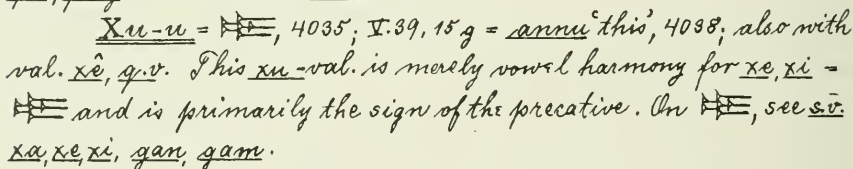 Xu-u = 𒃶, 4035; V. 39, 15 g = annu 'this', 4038; also with
val. xê, q.v. This xu-val. is merely vowel harmony for xe, xi =
𒃶 and is primarily the sign of the precative. On 𒃶, see s.v.
xa, xe, xi, gan, gam.